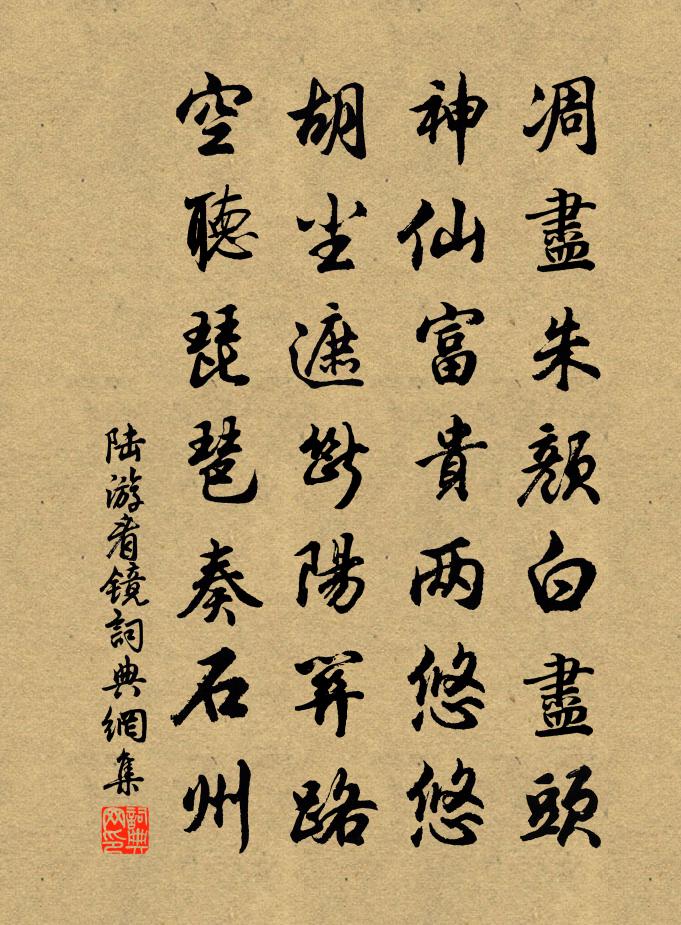 凋盡朱顏白盡頭
神仙富貴兩悠悠
胡塵遮斷陽關路
空聽琵琶奏石州
陆游看镜詞典網集
詞典网印